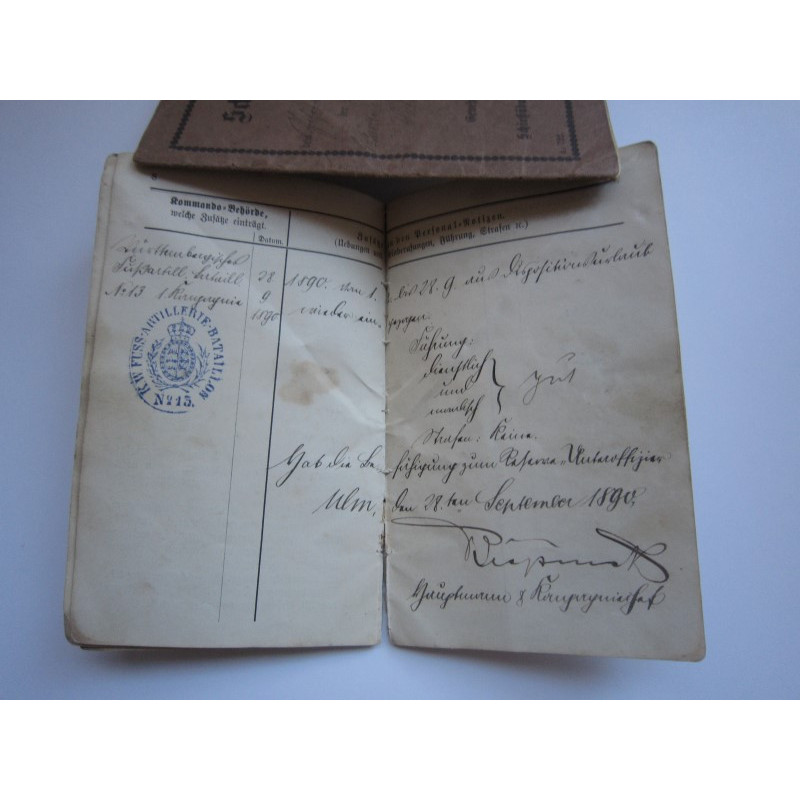 Kommando-Behörde,
welche Zusätze einträgt.
Datum.
Zusätze zu den Personal-Notizen.
(Uebungen und Einberufungen, Führung, Strafen ꝛc.)
Württembergisches
Fußartill. bataill.
No 13 1 Kompagnie
28
9
1890
K.W. FUSS-ARTILLERIE-BATAILLON
No 13.
1890: vom 1. bis 28. 9. aus Dispositionsurlaub
wieder eingezogen.
Führung:
dienstlich
und
moralisch
gut
Strafen: Keine.
Hat die Befähigung zum Reserve-Unteroffizier
Ulm, den 28.ten September 1890.
Hauptmann & Kompagniechef